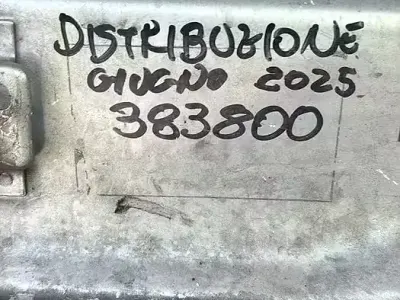 DISTRIBUZIONE
GIUGNO 2025
383800